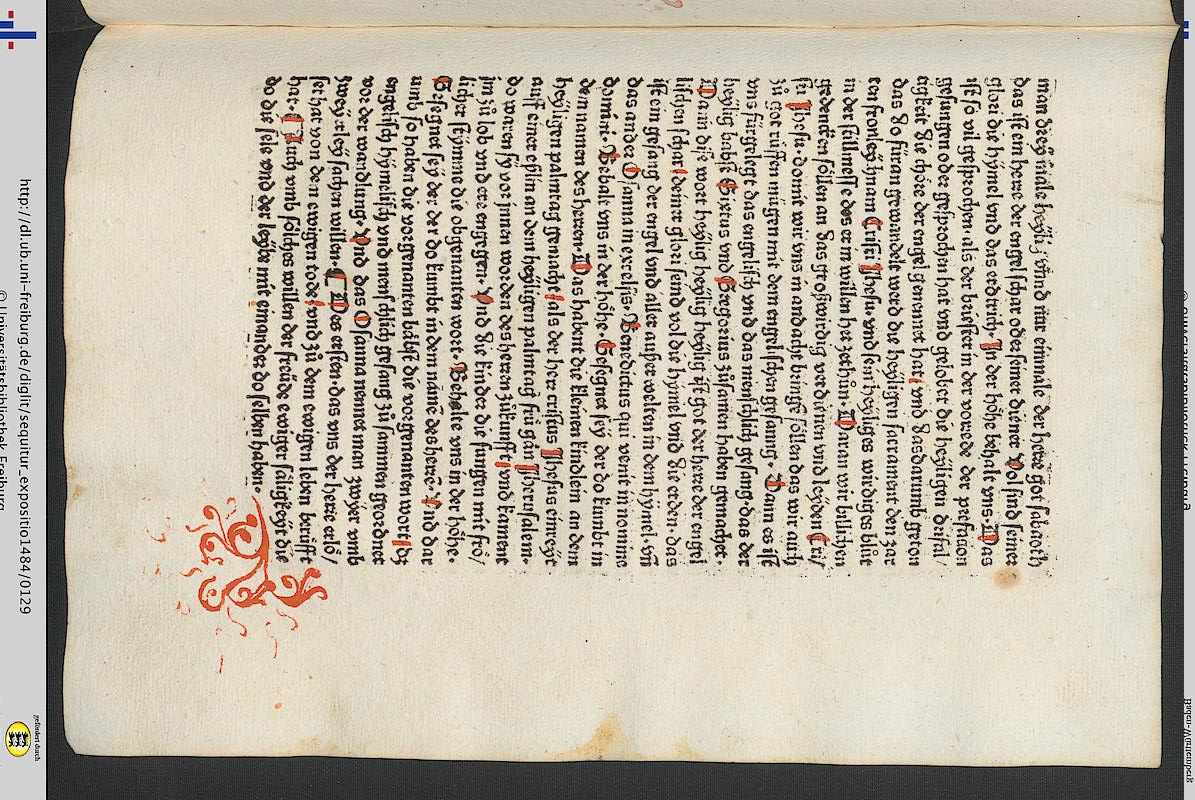 man drey male heylig vnnd nur einmale der herre got sabaoth
das ist ein herre der engel schar oder seiner diener. Vol sind himel
glori die hymel vnd das ertrich. In der höhe behalt vns. Das
ist so vil gesprochen. als der briester in der vorrede der prefacion
gesungen oder gesprochen hat vnd gelobet die heyligen driual/
tigkeit die chöre der engel genennet hat / vnd das darumb geton
das do füran gewandelt werd die heyligen sacrament den zar
ten fronleychnam Cristi Jhesu. vnd sein heyliges wirdiges blůt
in der stillmesse des ern willen hie zethůn. Daran wir billichen
gedencken söllen an das großwirdig verdienen vnd leyden Cri/
sti Jhesu. domit wir vns in andacht bringē söllen das wir auch
zů got rüffen mügen mit dem engelischen gesanng. Dann es ist
vns fürgelegt das engelisch vnd das menschlich gesang. das der
heylig babst Sixtus vnd Gregorius zůsamen haben gemachet.
Dann dise wort heylig heylig heylig ist got der herre der engel
lischen schar / deiner glori seind vol die hymel vnd die erden. das
ist ein gesang der engel vnd aller außer welten in dem hymel. vn̄
das ander Osanna in excelsis. Benedictus qui venit in nomine
domini. Behalt vns in der höhe. Gesegnet sey der do kumbt in
dem namen des herren. Das habent die kleinen kindlein an dem
heyligen palmtag gemacht / als der herr cristus Jhesus einreyt
auff einer eßlin an dem heyligen palmtag für gān Jherusalem.
do waren sy vor innen worden des herren zůkunfft / vnd kament
jm zů lob vnd ere engegen. Vnd die kinder die sungen mit frö/
licher stymme die obgenanten wort. Behalte vns in der höhe.
Gesegnet sey der der do kumbt in dem namē des herrē. Vnd dar
umb so haben die vorgenanten bäbst die vorgenanten wort / dz
engelisch hymelisch vnd menschlich gesang zů sammen geordnet
vor der wandlung. Vnd das Osanna nennet man zwyer vmb
zweyerley sachen willen. Des ersten. das vns der herre erlö/
set hat von dem ewigen tode / vnd zů dem ewigen leben berüfft
hat. Auch vmb sölches willen der freüde ewiger säligkeyt die
do die sele vnd der leybe mit einander do selben haben.
http://dl.ub.uni-freiburg.de/diglit/sequitur_expositio1484/0129
© Universitätsbibliothek Freiburg
gefördert durch